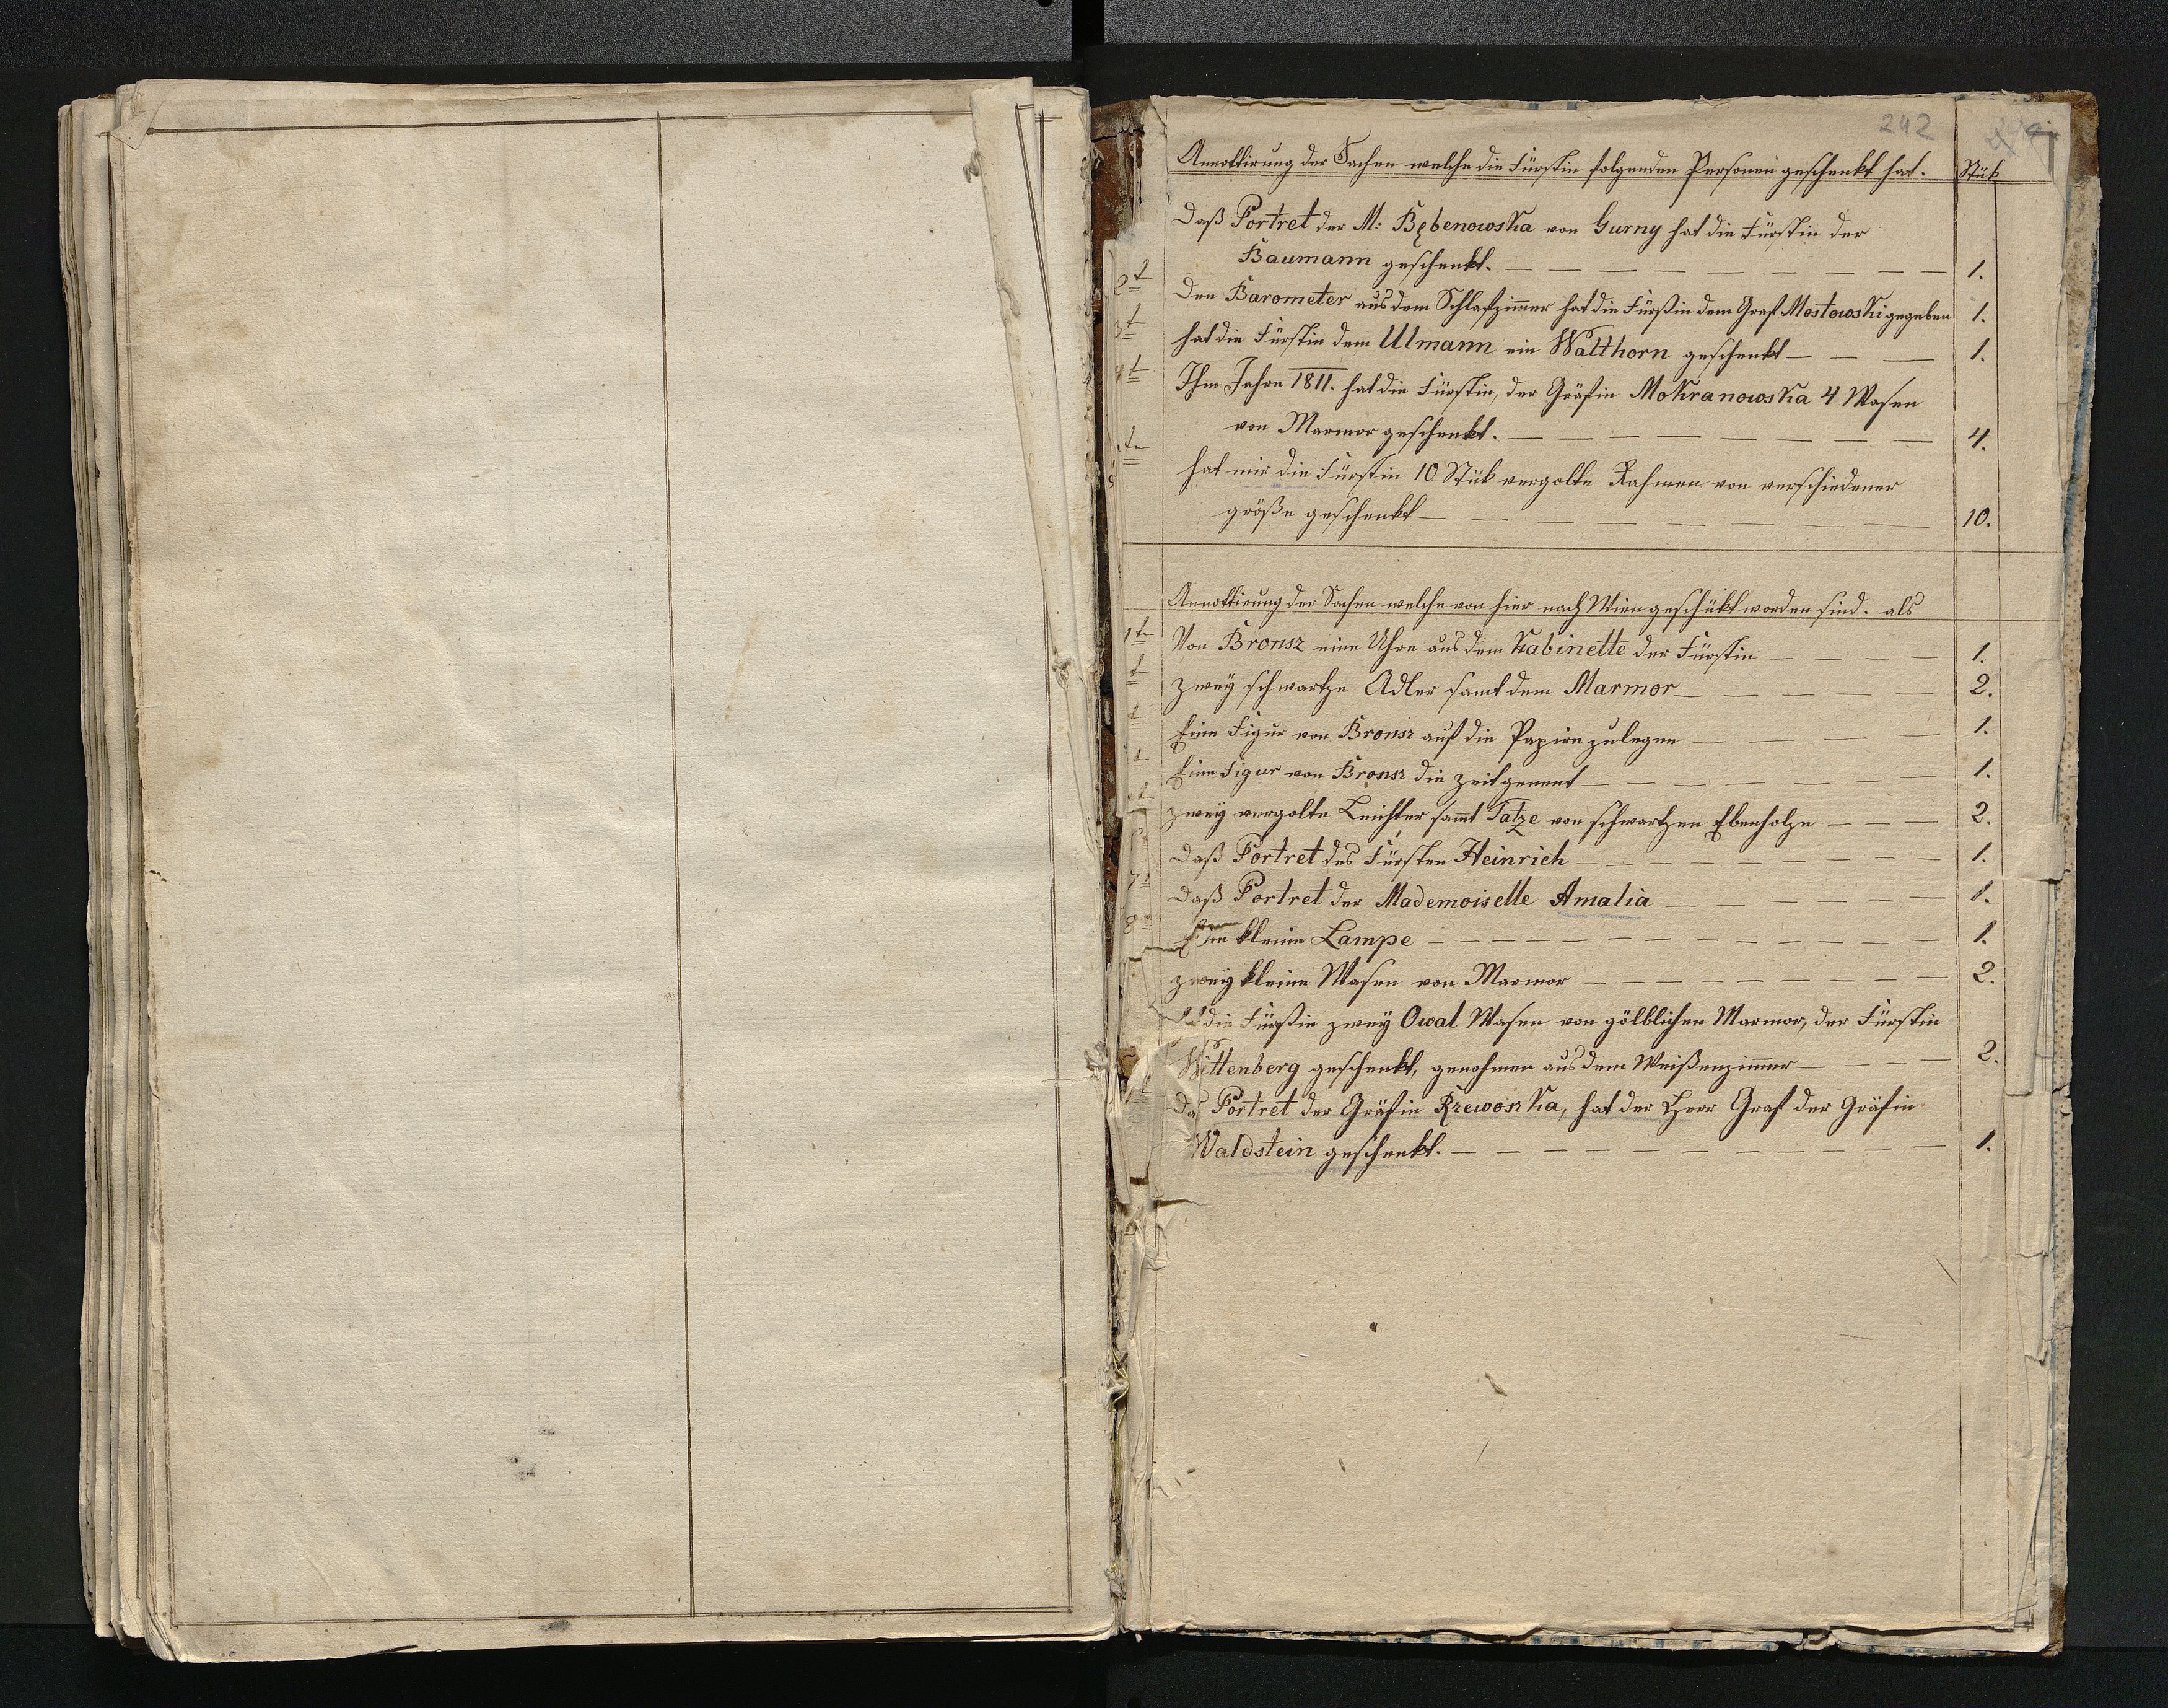 242
Annottirung der Sachen welche die Fürstin folgenden Personen geschenkt hat. Stük
Daß Portret der M: Bębenowska von Gurny hat die Fürstin der
Baumann geschenkt. — — — — — — — — — 1.
2t Den Barometer aus dem Schlafzimmer hat die Fürstin dem Graf Mostowski gegeben 1.
3t hat die Fürstin dem Ulmann ein Walthorn geschenkt — — — 1.
4t Ihm Jahre 1811. hat die Fürstin, der Gräfin Mokranowska 4 Wasen
von Marmor geschenkt. — — — — — — — — — 4.
5 hat mir die Fürstin 10 Stük vergolte Rahmen von verschiedener
größe geschenkt — — — — — — — — 10.
Annottirung der Sachen welche von hier nach Wien geschükt worden sind. als
1tn Von Bronsz eine Uhre aus dem Kabinette der Fürstin — — — — 1.
zweÿ schwartze Adler samt dem Marmor — — — — — — 2.
Eine Figur von Bronsz auf die Papire zulegen — — — — — 1.
Eine Figur von Bronsz die Zeit genent — — — — — — — 1.
zweÿ vergolte Leichter samt Tatze von schwartzen Ebenholze — — — 2.
Daß Portret des Fürsten Heinrich — — — — — — — — 1.
7 Daß Portret der Mademoiselle Amalia — — — — — — 1.
8 kleine Lampe — — — — — — — — — — — — 1.
zweÿ kleine Wasen von Marmor — — — — — — — — 2.
die Fürstin zweÿ Owal Wasen von gölblichen Marmor, der Fürstin
Wittenberg geschenkt, genohmen aus dem Weißenzimmer — — — 2.
Das Portret der Gräfin Rzewoszka, hat der Herr Graf der Gräfin
Waldstein geschenkt. — — — — — — — — — — — 1.